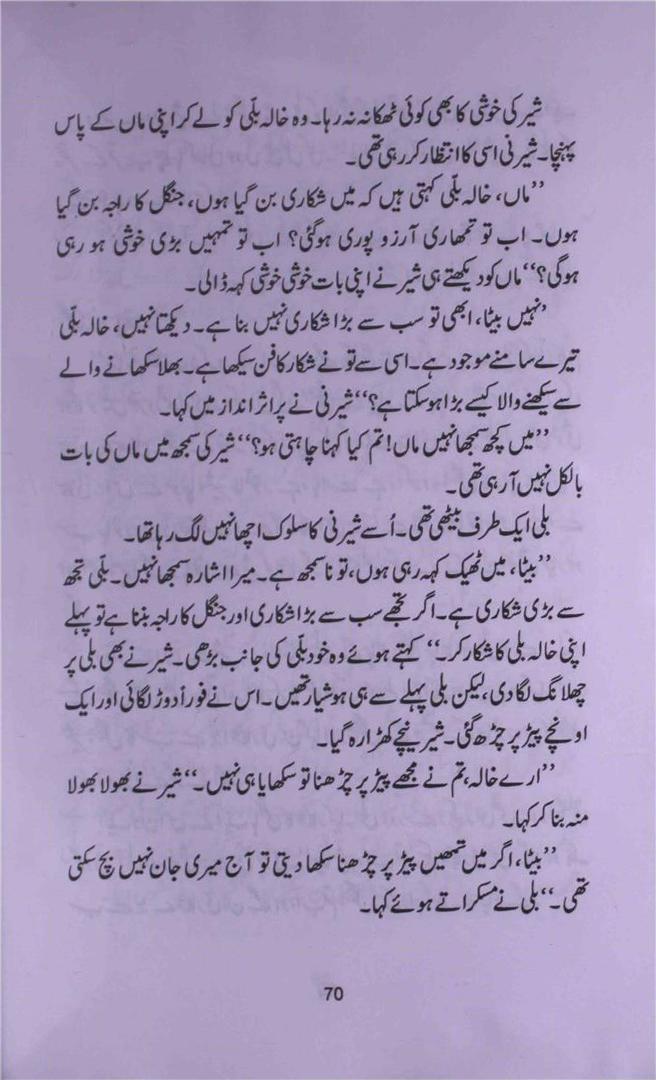 شیر کی خوشی کا بھی کوئی ٹھکانہ نہ رہا۔ وہ خالہ بلّی کو لے کر اپنی ماں کے پاس
پہنچا۔ شیرنی اسی کا انتظار کر رہی تھی۔
’’ماں، خالہ بلّی کہتی ہیں کہ میں شکاری بن گیا ہوں، جنگل کا راجہ بن گیا
ہوں۔ اب تو تمھاری آرزو پوری ہوگئی؟ اب تو تمہیں بڑی خوشی ہو رہی
ہوگی؟‘‘ ماں کو دیکھتے ہی شیر نے اپنی بات خوشی خوشی کہہ ڈالی۔
’نہیں بیٹا، ابھی تو سب سے بڑا شکاری نہیں بنا ہے۔ دیکھتا نہیں، خالہ بلّی
تیرے سامنے موجود ہے۔ اسی سے تو نے شکار کا فن سیکھا ہے۔ بھلا سکھانے والے
سے سیکھنے والا کیسے بڑا ہو سکتا ہے؟‘‘ شیرنی نے پر اثر انداز میں کہا۔
’’میں کچھ سمجھا نہیں ماں! تم کیا کہنا چاہتی ہو؟‘‘ شیر کی سمجھ میں ماں کی بات
بالکل نہیں آ رہی تھی۔
بلی ایک طرف بیٹھی تھی۔ اُسے شیرنی کا سلوک اچھا نہیں لگ رہا تھا۔
’’بیٹا، میں ٹھیک کہہ رہی ہوں، تو نا سمجھ ہے۔ میرا اشارہ سمجھا نہیں۔ بلّی تجھ
سے بڑی شکاری ہے۔ اگر تجھے سب سے بڑا شکاری اور جنگل کا راجہ بننا ہے تو پہلے
اپنی خالہ بلی کا شکار کر۔‘‘ کہتے ہوئے وہ خود بلّی کی جانب بڑھی۔ شیر نے بھی بلی پر
چھلانگ لگا دی، لیکن بلی پہلے سے ہی ہوشیار تھیں۔ اس نے فوراً دوڑ لگائی اور ایک
اونچے پیڑ پر چڑھ گئی۔ شیر نیچے کھڑا رہ گیا۔
’’ارے خالہ، تم نے مجھے پیڑ پر چڑھنا تو سکھایا ہی نہیں۔‘‘ شیر نے بھولا بھولا
منہ بنا کر کہا۔
’’بیٹا، اگر میں تمھیں پیڑ پر چڑھنا سکھا دیتی تو آج میری جان نہیں بچ سکتی
تھی۔‘‘ بلی نے مسکراتے ہوئے کہا۔
70